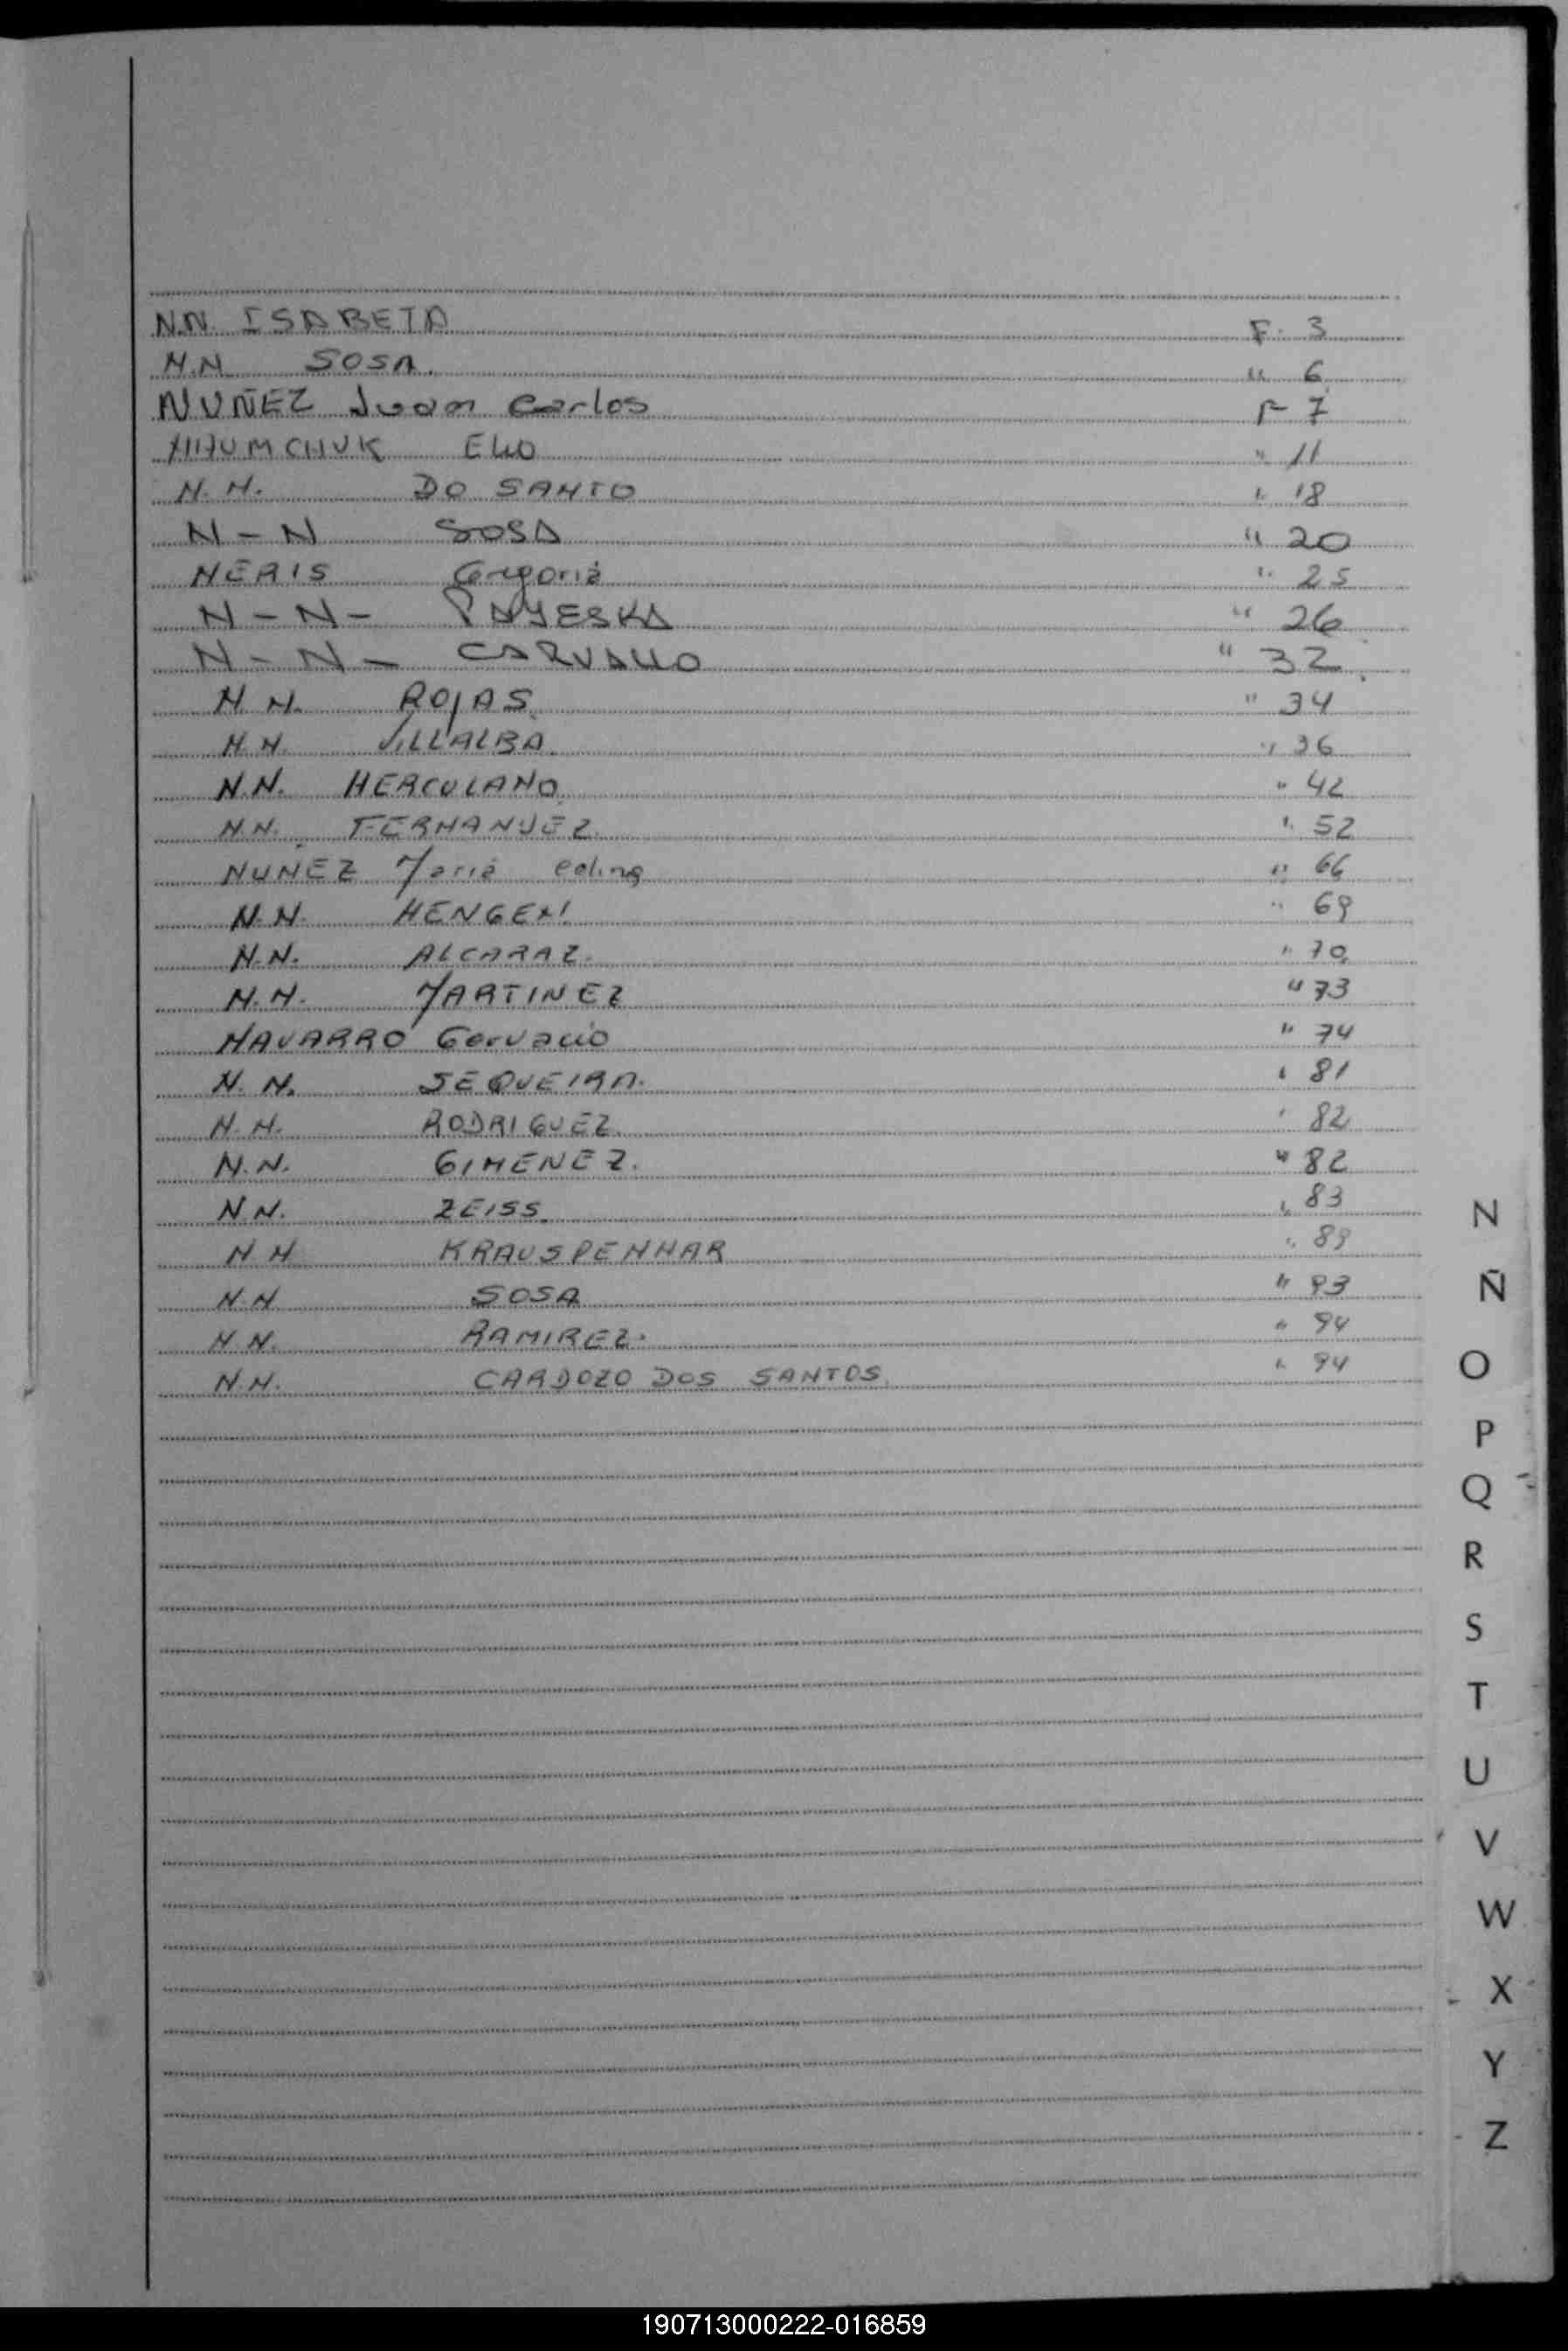 N.N. ISABETA F. 3
N.N SOSA. " 6
NUÑEZ Juan Carlos F 7
NAUMCHUK ELIO " 11
N.N. DO SANTO " 18
N-N SOSA " 20
NERIS Gregoria " 25
N-N- PAYESKA " 26
N-N- CARVALLO " 32
N N. ROJAS. " 34
N N. VILLALBA " 36
N.N. HERCULANO " 42
N.N. FERNANDEZ. " 52
NUÑEZ Maria " 66
N.N. HENGEN! " 69
N.N. ALCARAZ. " 70
N.N. MARTINEZ " 73
NAVARRO Gervacio " 74
N.N. SEQUEIRA. " 81
N.N. RODRIGUEZ. " 82
N.N. GIMENEZ. " 82
N N. ZEISS. " 83
N N KRAUSPENHAR " 89
N.N SOSA " 93
N.N. RAMIREZ. " 94
N.N. CARDOZO DOS SANTOS. " 94
N
Ñ
O
P
Q
R
S
T
U
V
W
X
Y
Z
190713000222-016859